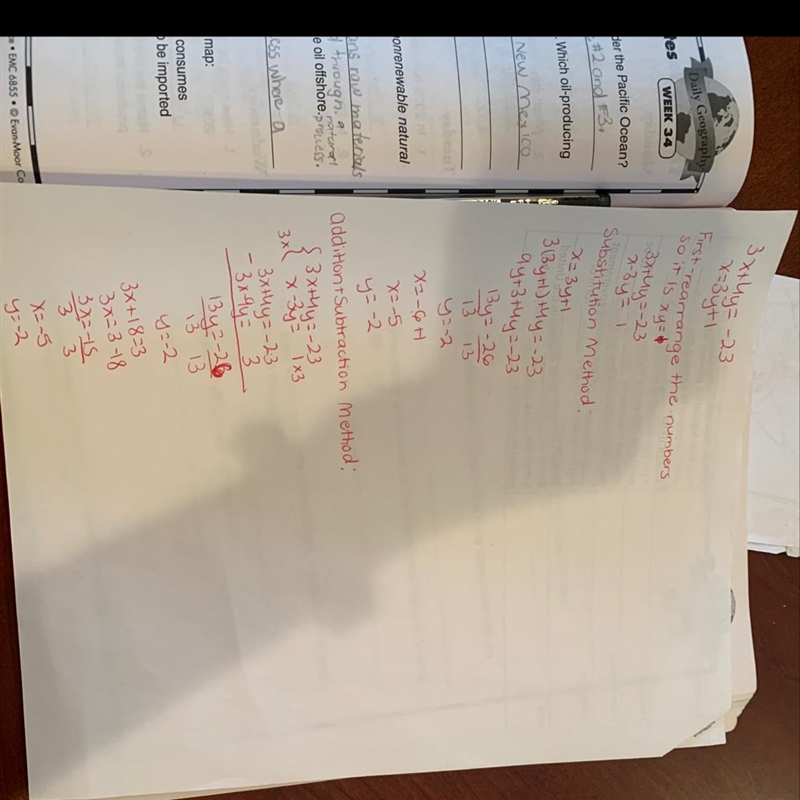 3x+4y= -23
x=3y+1
First-rearrange the numbers
so it is xy=#
3x+4y=-23
x-3y= 1
Substitution Method:
x=3y+1
3(3y+1)+4y=-23
9y+3+4y=-23
13y=-26
13 13
y=-2
x=-6+1
x=-5
y=-2
Addition+Subtraction Method:
3x { 3x+4y=-23
x-3y= 1 x3
3x+4y=-23
- 3x-9y= 3
13y=-26
13 13
y=-2
3x+18=3
3x=3-18
3x=-15
3 3
x=-5
y=-2
Daily Geography
WEEK 34
der the Pacific Ocean?
#2 and #3.
Which oil-producing
New Mexico
onrenewable natural
raw materials
through. a
natural
e oil offshore.
process.
ess where a
map:
consumes
o be imported
ce • EMC 6855 • © Evan-Moor Co